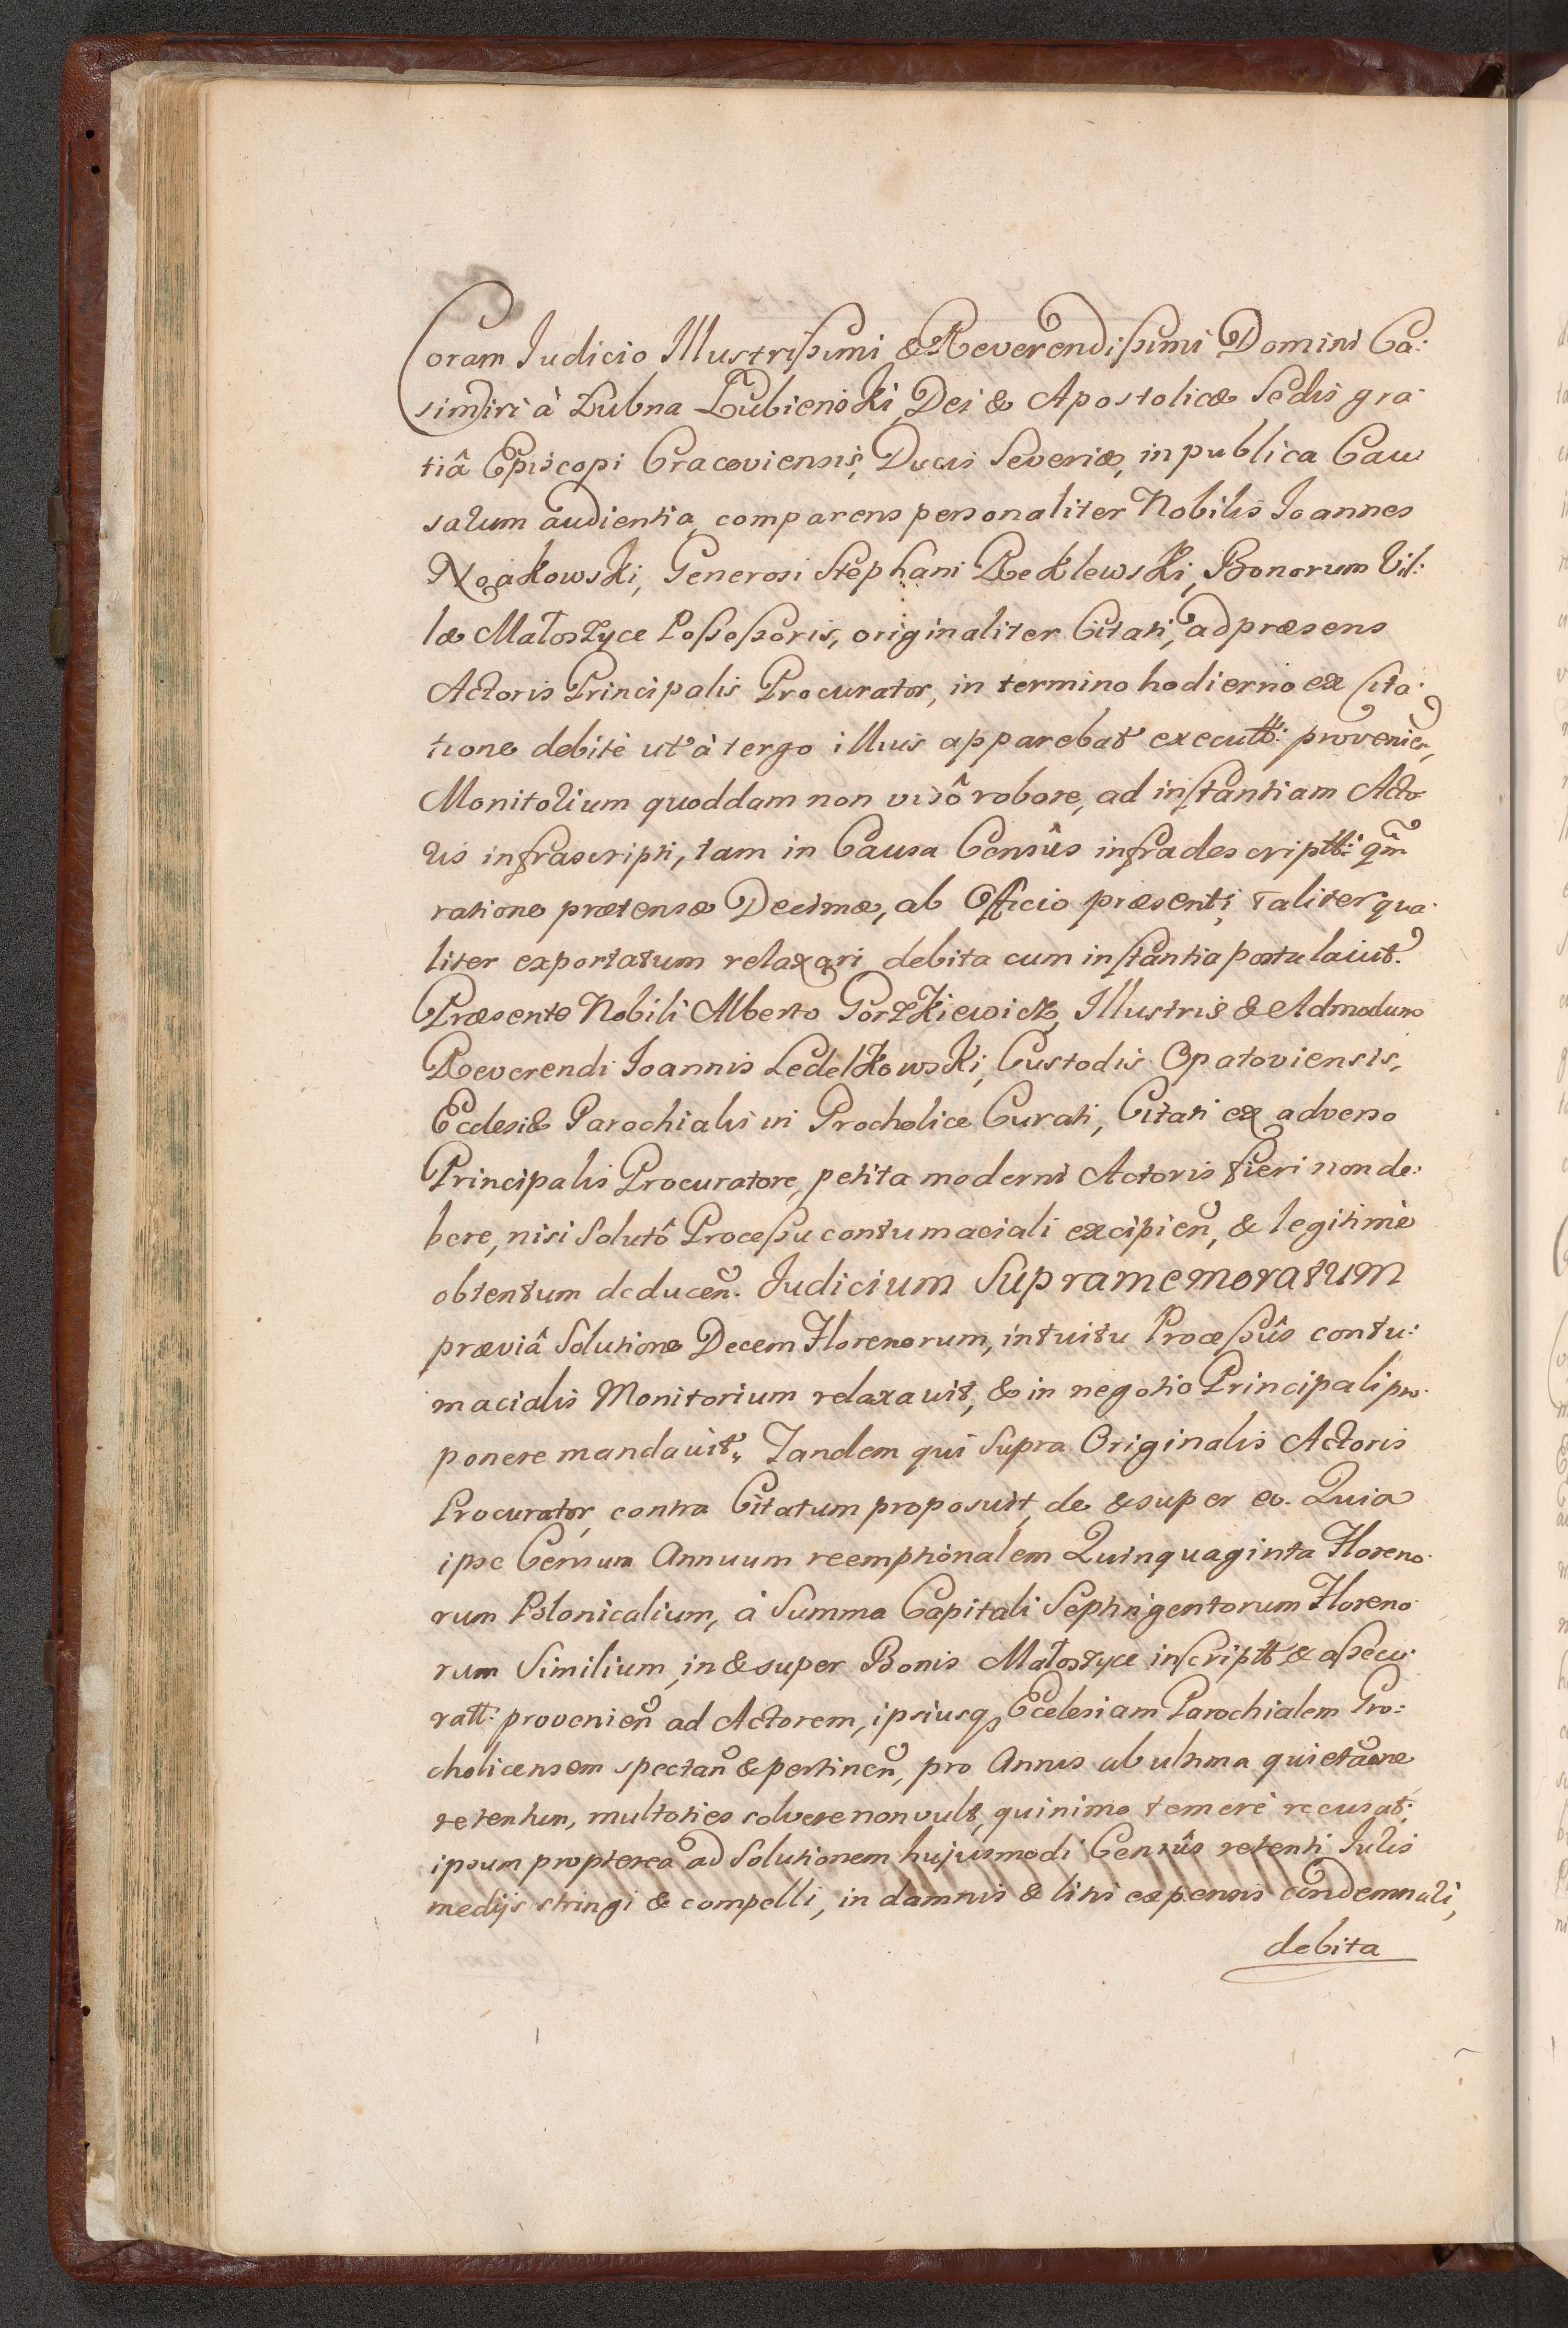 Coram Judicio Illustrissimi & Reverendissimi Domini Ca:
simiri à Łubna Łubienski, Dei & Apostolicæ Sedis gra:
tiâ Episcopi Cracoviensis, Ducis Severiæ, in publica Cau
sarum audientia, comparens personaliter Nobilis Joannes
Noakowski, Generosi Stephani Reklewski, Bonorum Vil:
læ Małoszyce Possessoris, originaliter Citati, ad præsens
Actoris Principalis Procurator, in termino hodierno ex Cita:
tione debitè ut à tergo illius apparebat executt: provenien,
Monitorium quoddam non visô robore, ad instantiam Acto
ris infrascripti, tam in Causa Censûs infradescriptti: qm
ratione prætensæ Decimæ, ab Officio præsenti, taliter qua
liter exportatum relaxari, debita cum instantia postulavit.
Præsente Nobili Alberto Gorzkiewicz, Illustris & Admodum
Reverendi Joannis Ledelkowski, Custodis Opatoviensis,
Ecclesiæ Parochialis in Procholice Curati, Citati ex adverso
Principalis Procuratore, petita moderni Actoris fieri non de:
bere, nisi Solutô Processu contumaciali excipien, & legitimè
obtentum deducen. Judicium Supramemoratum
præviâ Solutione Decem Florenorum, intuitu Processûs contu:
macialis Monitorium relaxavit, & in negotio Principali pro
ponere mandavit. Tandem qui Supra Originalis Actoris
Procurator, contra Citatum proposuit, de & super eo. Quia
ipse Censum Annuum reemptionalem Quinquaginta Floreno
rum Polonicalium, à Summa Capitali Septingentorum Floreno
rum Similium, in & super Bonis Małoszyce inscriptt & assecu
ratt: provenien ad Actorem, ipsiusq Ecclesiam Parochialem Pro:
cholicensem spectan & pertinen, pro Annis ab ultima quietaone
retentum, multoties solvere non vult, quinimo temerè recusat:
ipsum propterea ad Solutionem hujusmodi Censûs retenti Juris
medijs stringi & compelli, in damnis & litis expensis condemnari,
debita